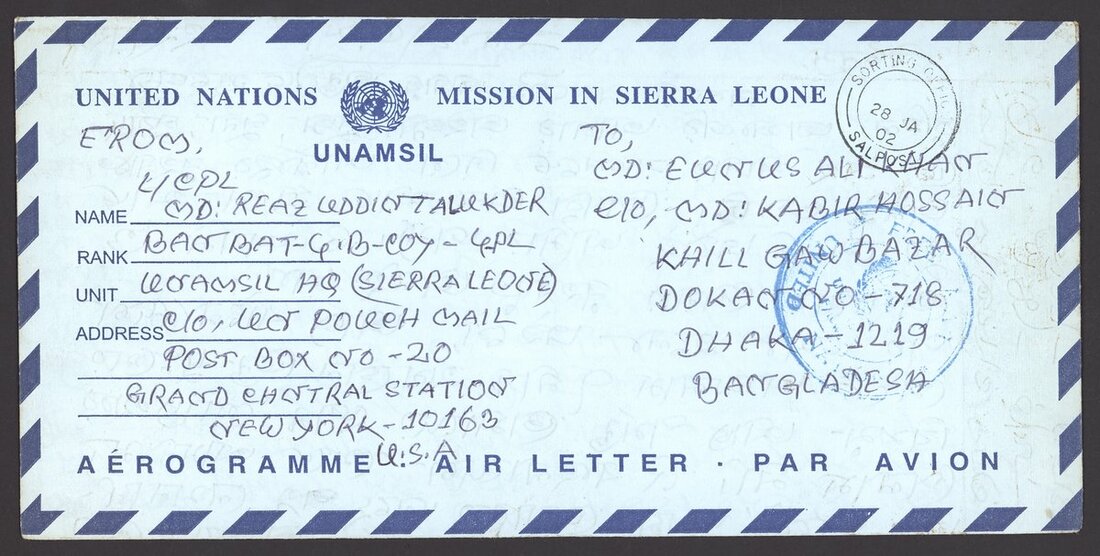 UNITED NATIONS MISSION IN SIERRA LEONE
UNAMSIL
FROM,
L/CPL
NAME MD: REAZ UDDIN TALUKDER
RANK BANBAT-4, B-COY-
UNIT UNAMSIL HQ (SIERRA LEONE)
ADDRESS C/O, UN POUCH MAIL
POST BOX NO-20
GRAND CENTRAL STATION
NEW YORK-10163
U.S.A
TO,
MD: EUNUS ALI KHAN
C/O, MD: KABIR HOSSAIN
KHILL GAW BAZAR
DOKAN NO-718
DHAKA-1219
BANGLADESH
SORTING
28 JA
02
SALPOST
UNITED
AÉROGRAMME AIR LETTER · PAR AVION